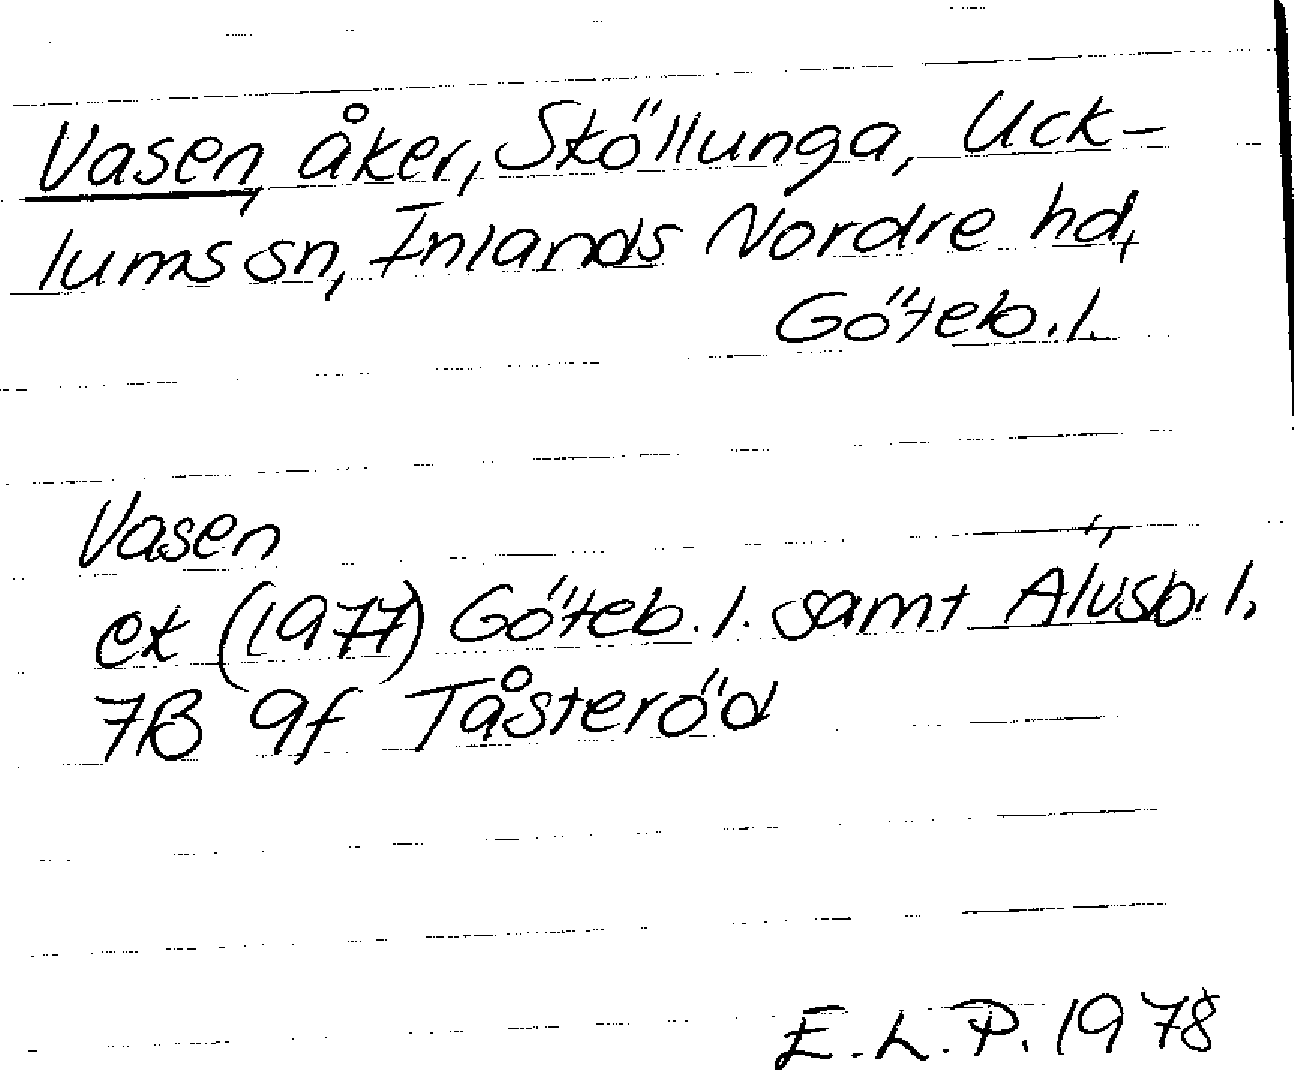 Vasen, åker, Sköllunga, Uck-
lums sn, Inlands Nordre hd,
Göteb. l.
Vasen
ek (1977) Göteb. l. samt Älvsb. l.
7B 9f Tåsteröd
E.L.P. 1978